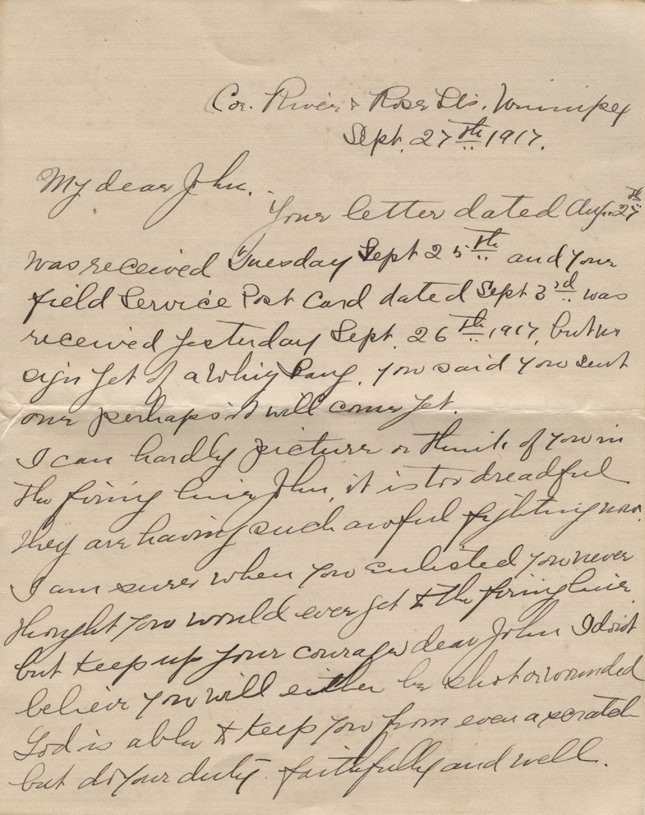 Cor. River & Rose Sts. Winnipeg
Sept. 27th 1917.
My dear John.
Your letter dated Aug. 27th
was received Tuesday Sept 25th and your
field Service Post Card dated Sept 3rd was
received yesterday Sept. 26th 1917, but no
sign yet of a Whiz Bang, you said you sent
one perhaps it will come yet.
I can hardly picture or think of you in
the firing line John, it is too dreadful
they are having such awful fighting now.
I am sure when you enlisted you never
thought you would ever get to the firing line.
but keep up your courage dear John I don't
believe you will either be shot or wounded
God is able to keep you from even a scratch
but do your duty faithfully and well.